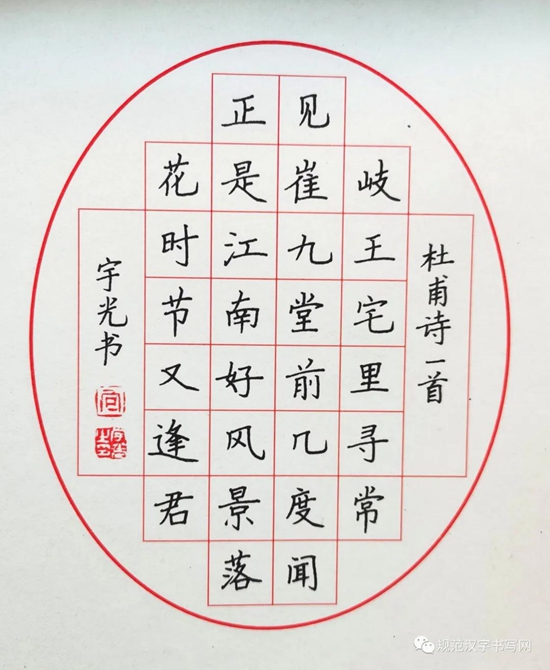 杜甫诗一首
岐王宅里寻常
见崔九堂前几度闻
正是江南好风景落
花时节又逢君
宇光书
规范汉字书写网